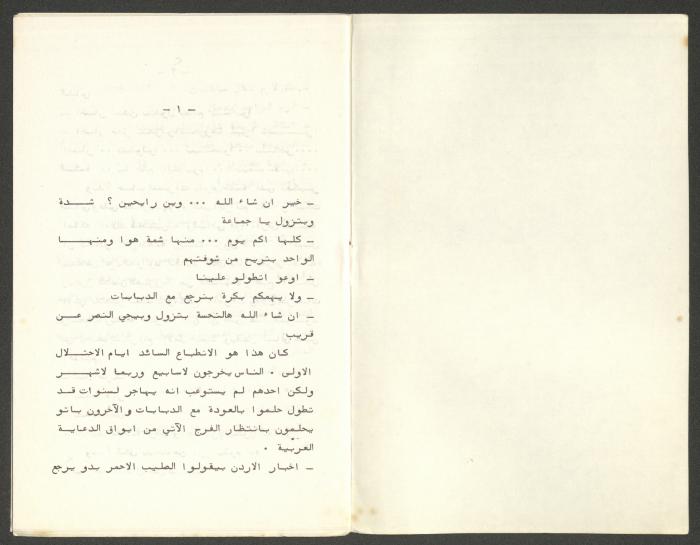 - ١ -
- خير ان شاء الله ... وين رايحين ؟ شدة
وبتزول يا جماعة
- كلها اكم يوم ... منها شمة هوا ومنها
الواحد بتريح من شوفتهم
- اوعو اتطولو علينا
- ولا يهمكم بكرة بنرجع مع الدبابات
- ان شاء الله هالنحسة بتزول وبيجي النصر عن
قريب
كان هذا هو الانطباع السائد ايام الاحتلال
الاولى . الناس يخرجون لاسابيع وربما لاشهر
ولكن احدهم لم يستوعب انه يهاجر لسنوات قد
تطول حلموا بالعودة مع الدبابات والآخرون باتو
يحلمون بانتظار الفرج الآتي من ابواق الدعاية
العربية .
- اخبار الاردن بيقولوا الطليب الاحمر بدو يرجع